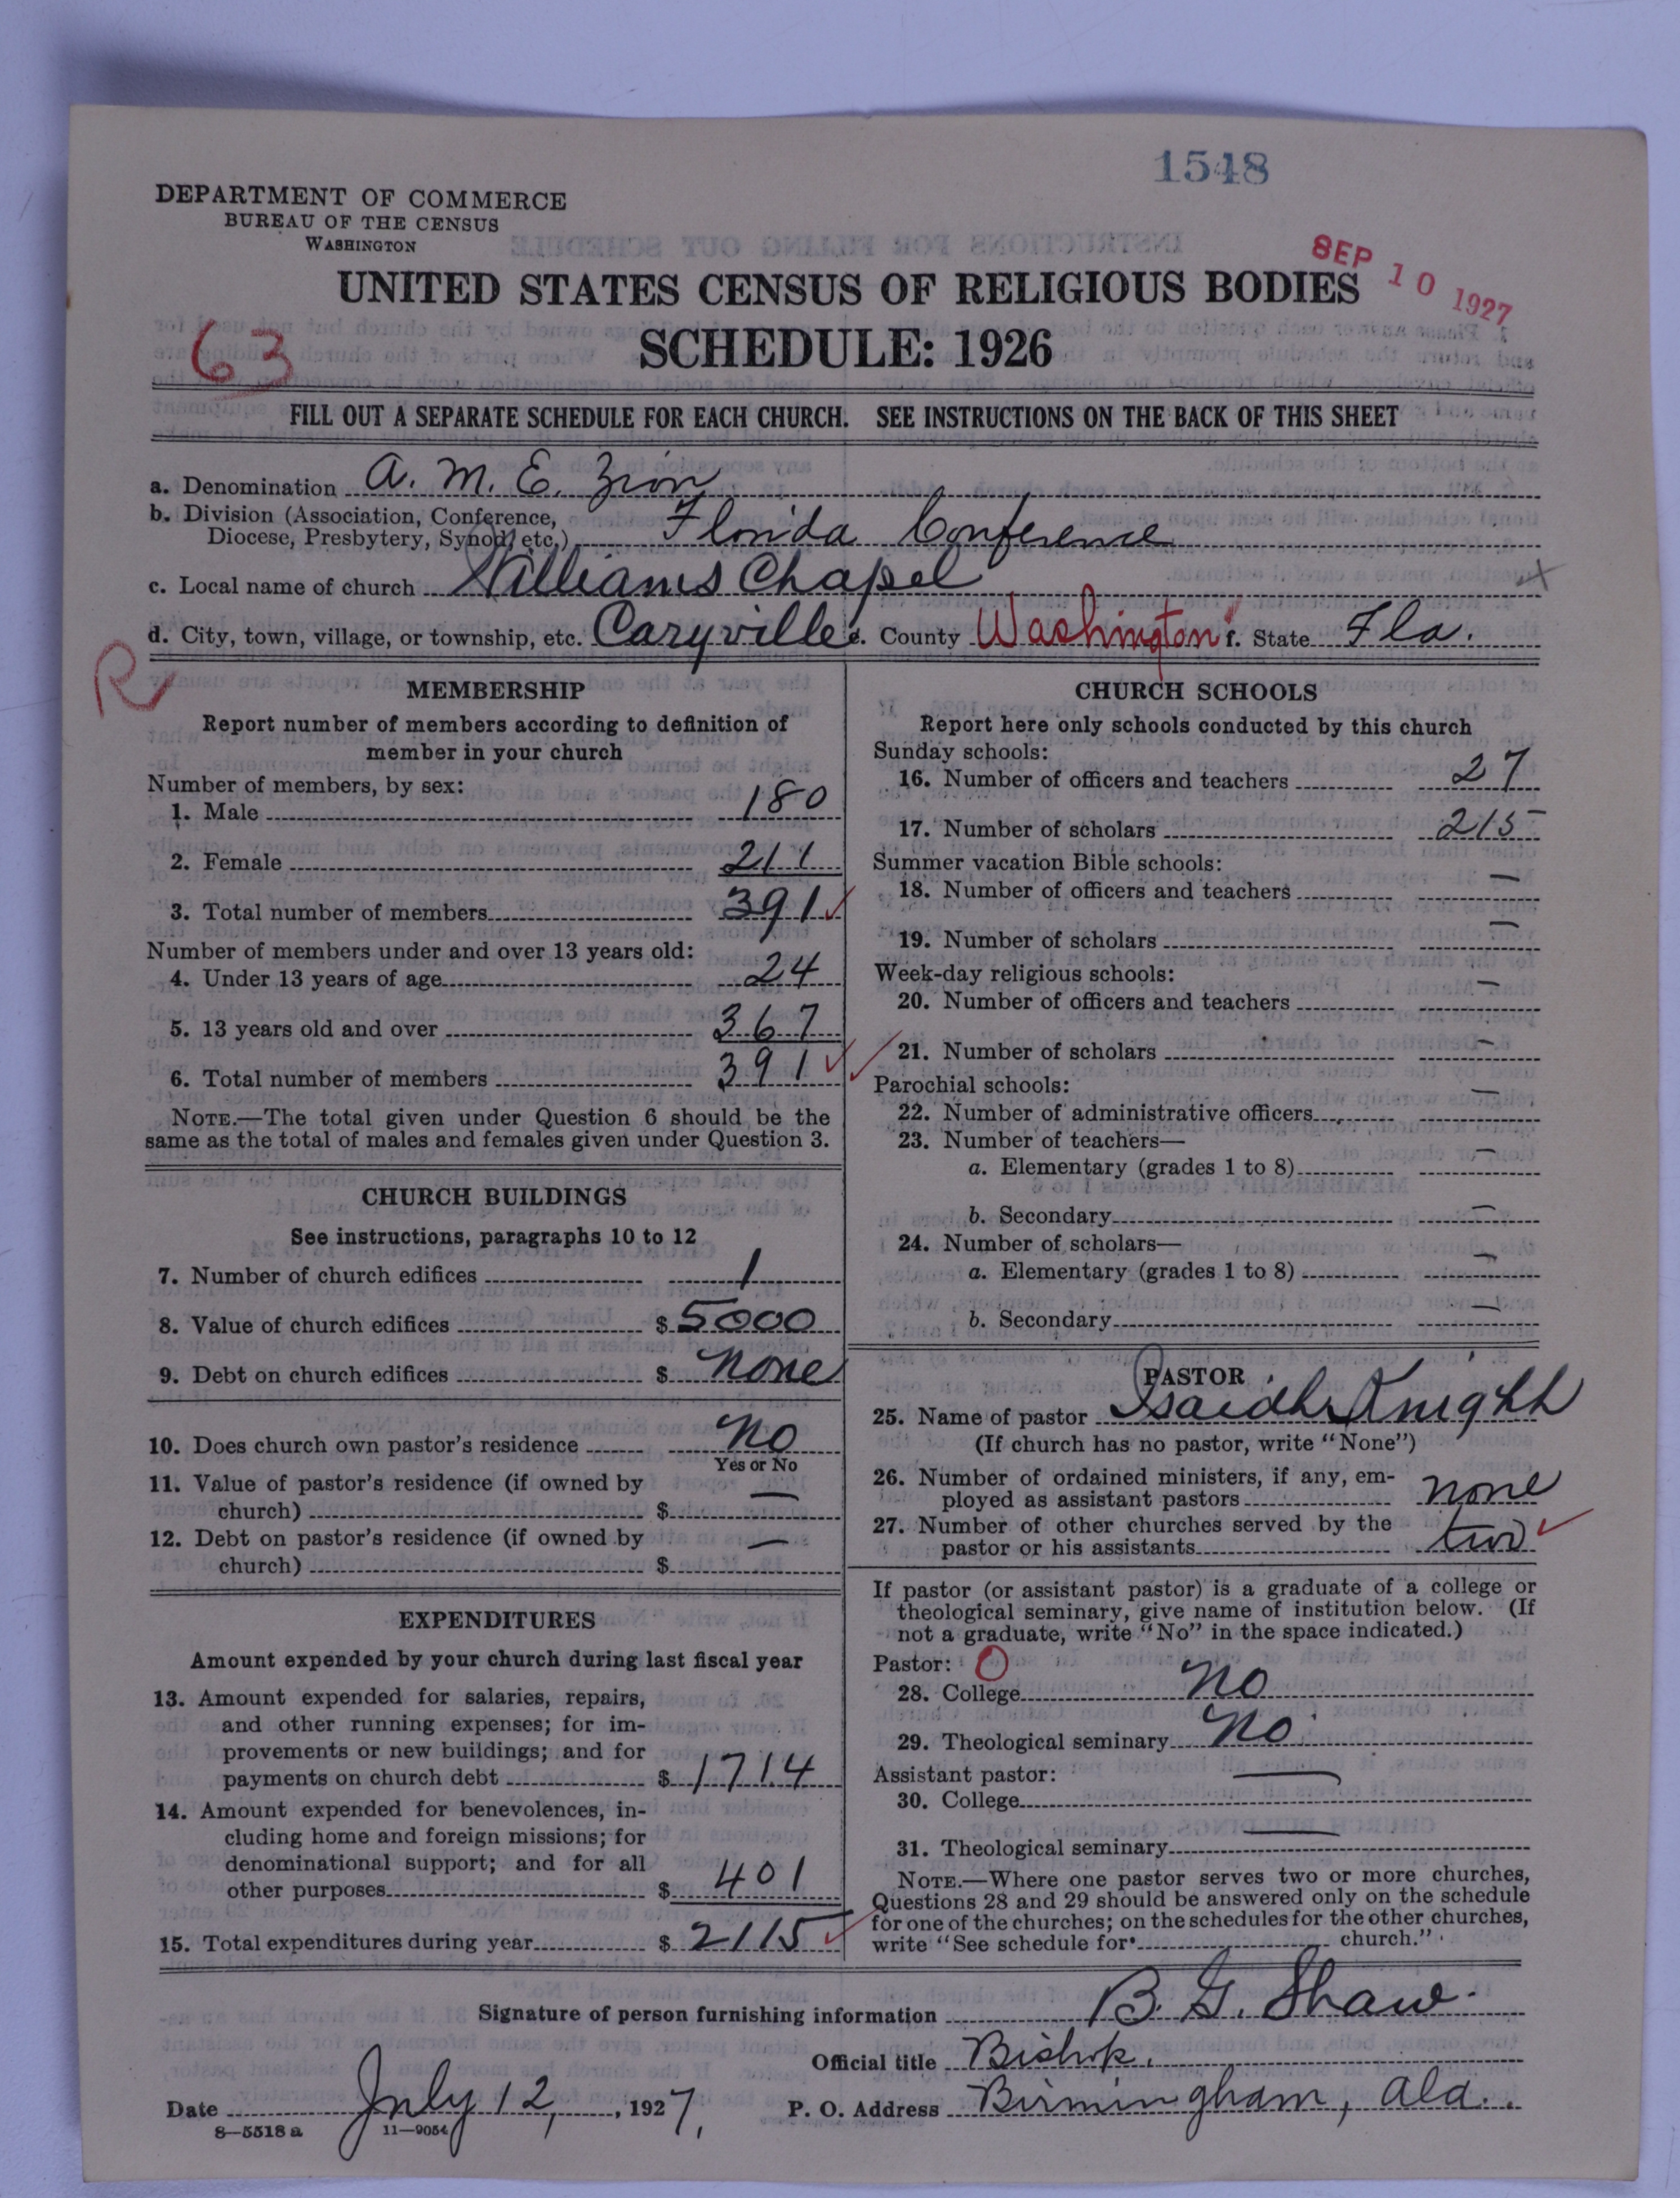 1548
DEPARTMENT OF COMMERCE
BUREAU OF THE CENSUS
WASHINGTON
SEP 10 1927
UNITED STATES CENSUS OF RELIGIOUS BODIES
63
SCHEDULE: 1926
FILL OUT A SEPARATE SCHEDULE FOR EACH CHURCH. SEE INSTRUCTIONS ON THE BACK OF THIS SHEET
a. Denomination A. M. E. Zion
b. Division (Association, Conference,
Diocese, Presbytery, Synod, etc.) Florida Conference
c. Local name of church Williams Chapel
d. City, town, village, or township, etc. Caryville e. County Washington f. State Fla.
R
MEMBERSHIP
Report number of members according to definition of
member in your church
Number of members, by sex:
1. Male 180
2. Female 211
3. Total number of members 391
Number of members under and over 13 years old:
4. Under 13 years of age 24
5. 13 years old and over 367
6. Total number of members 391
NOTE.—The total given under Question 6 should be the
same as the total of males and females given under Question 3.
CHURCH BUILDINGS
See instructions, paragraphs 10 to 12
7. Number of church edifices 1
8. Value of church edifices $ 5000
9. Debt on church edifices $ none
10. Does church own pastor's residence no
Yes or No
11. Value of pastor's residence (if owned by
church) $ —
12. Debt on pastor's residence (if owned by
church) $ —
EXPENDITURES
Amount expended by your church during last fiscal year
13. Amount expended for salaries, repairs,
and other running expenses; for im-
provements or new buildings; and for
payments on church debt $ 1714
14. Amount expended for benevolences, in-
cluding home and foreign missions; for
denominational support; and for all
other purposes $ 401
15. Total expenditures during year $ 2115
CHURCH SCHOOLS
Report here only schools conducted by this church
Sunday schools:
16. Number of officers and teachers 27
17. Number of scholars 215
Summer vacation Bible schools:
18. Number of officers and teachers —
19. Number of scholars —
Week-day religious schools:
20. Number of officers and teachers —
21. Number of scholars —
Parochial schools:
22. Number of administrative officers —
23. Number of teachers—
a. Elementary (grades 1 to 8) —
b. Secondary —
24. Number of scholars—
a. Elementary (grades 1 to 8) —
b. Secondary —
PASTOR
25. Name of pastor Isaiah Knight
(If church has no pastor, write "None")
26. Number of ordained ministers, if any, em-
ployed as assistant pastors none
27. Number of other churches served by the
pastor or his assistants two
If pastor (or assistant pastor) is a graduate of a college or
theological seminary, give name of institution below. (If
not a graduate, write "No" in the space indicated.)
Pastor: O
28. College no
29. Theological seminary no
Assistant pastor:
30. College —
31. Theological seminary —
NOTE.—Where one pastor serves two or more churches,
Questions 28 and 29 should be answered only on the schedule
for one of the churches; on the schedules for the other churches,
write "See schedule for church."
Signature of person furnishing information B. G. Shaw.
Official title Bishop.
Date July 12, 1927, P. O. Address Birmingham, Ala.
8—5518 a 11—9054